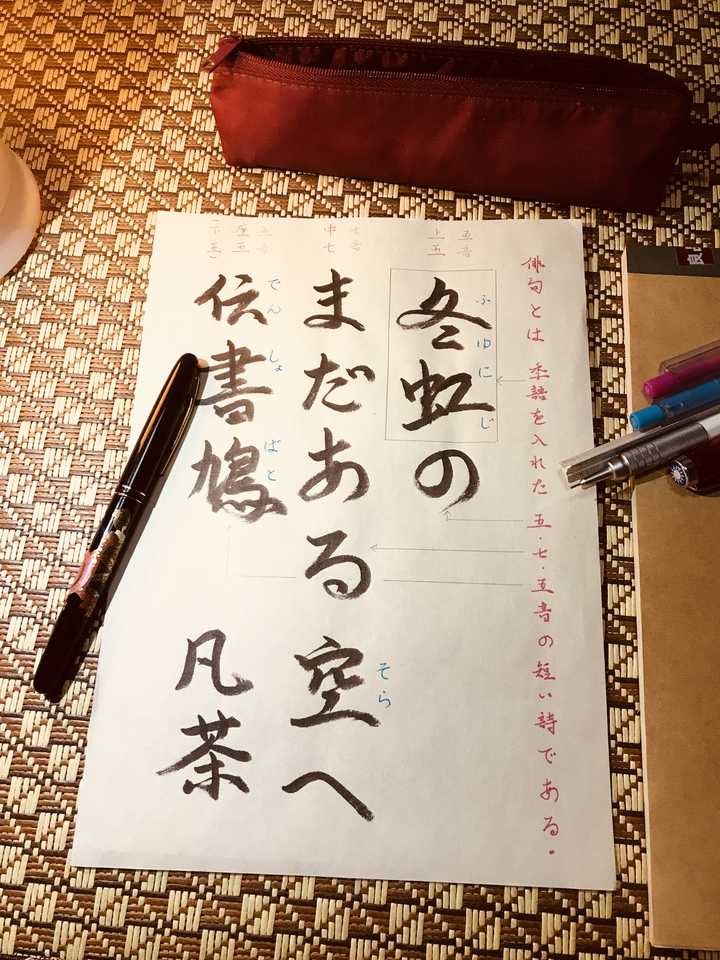 俳句とは 季語を入れた 五・七・五音の短い詩である。
五音
上五
ふゆにじ
冬虹の
七音
中七
そら
まだある空へ
五音
座五
(下五)
でんしょばと
伝書鳩 凡茶